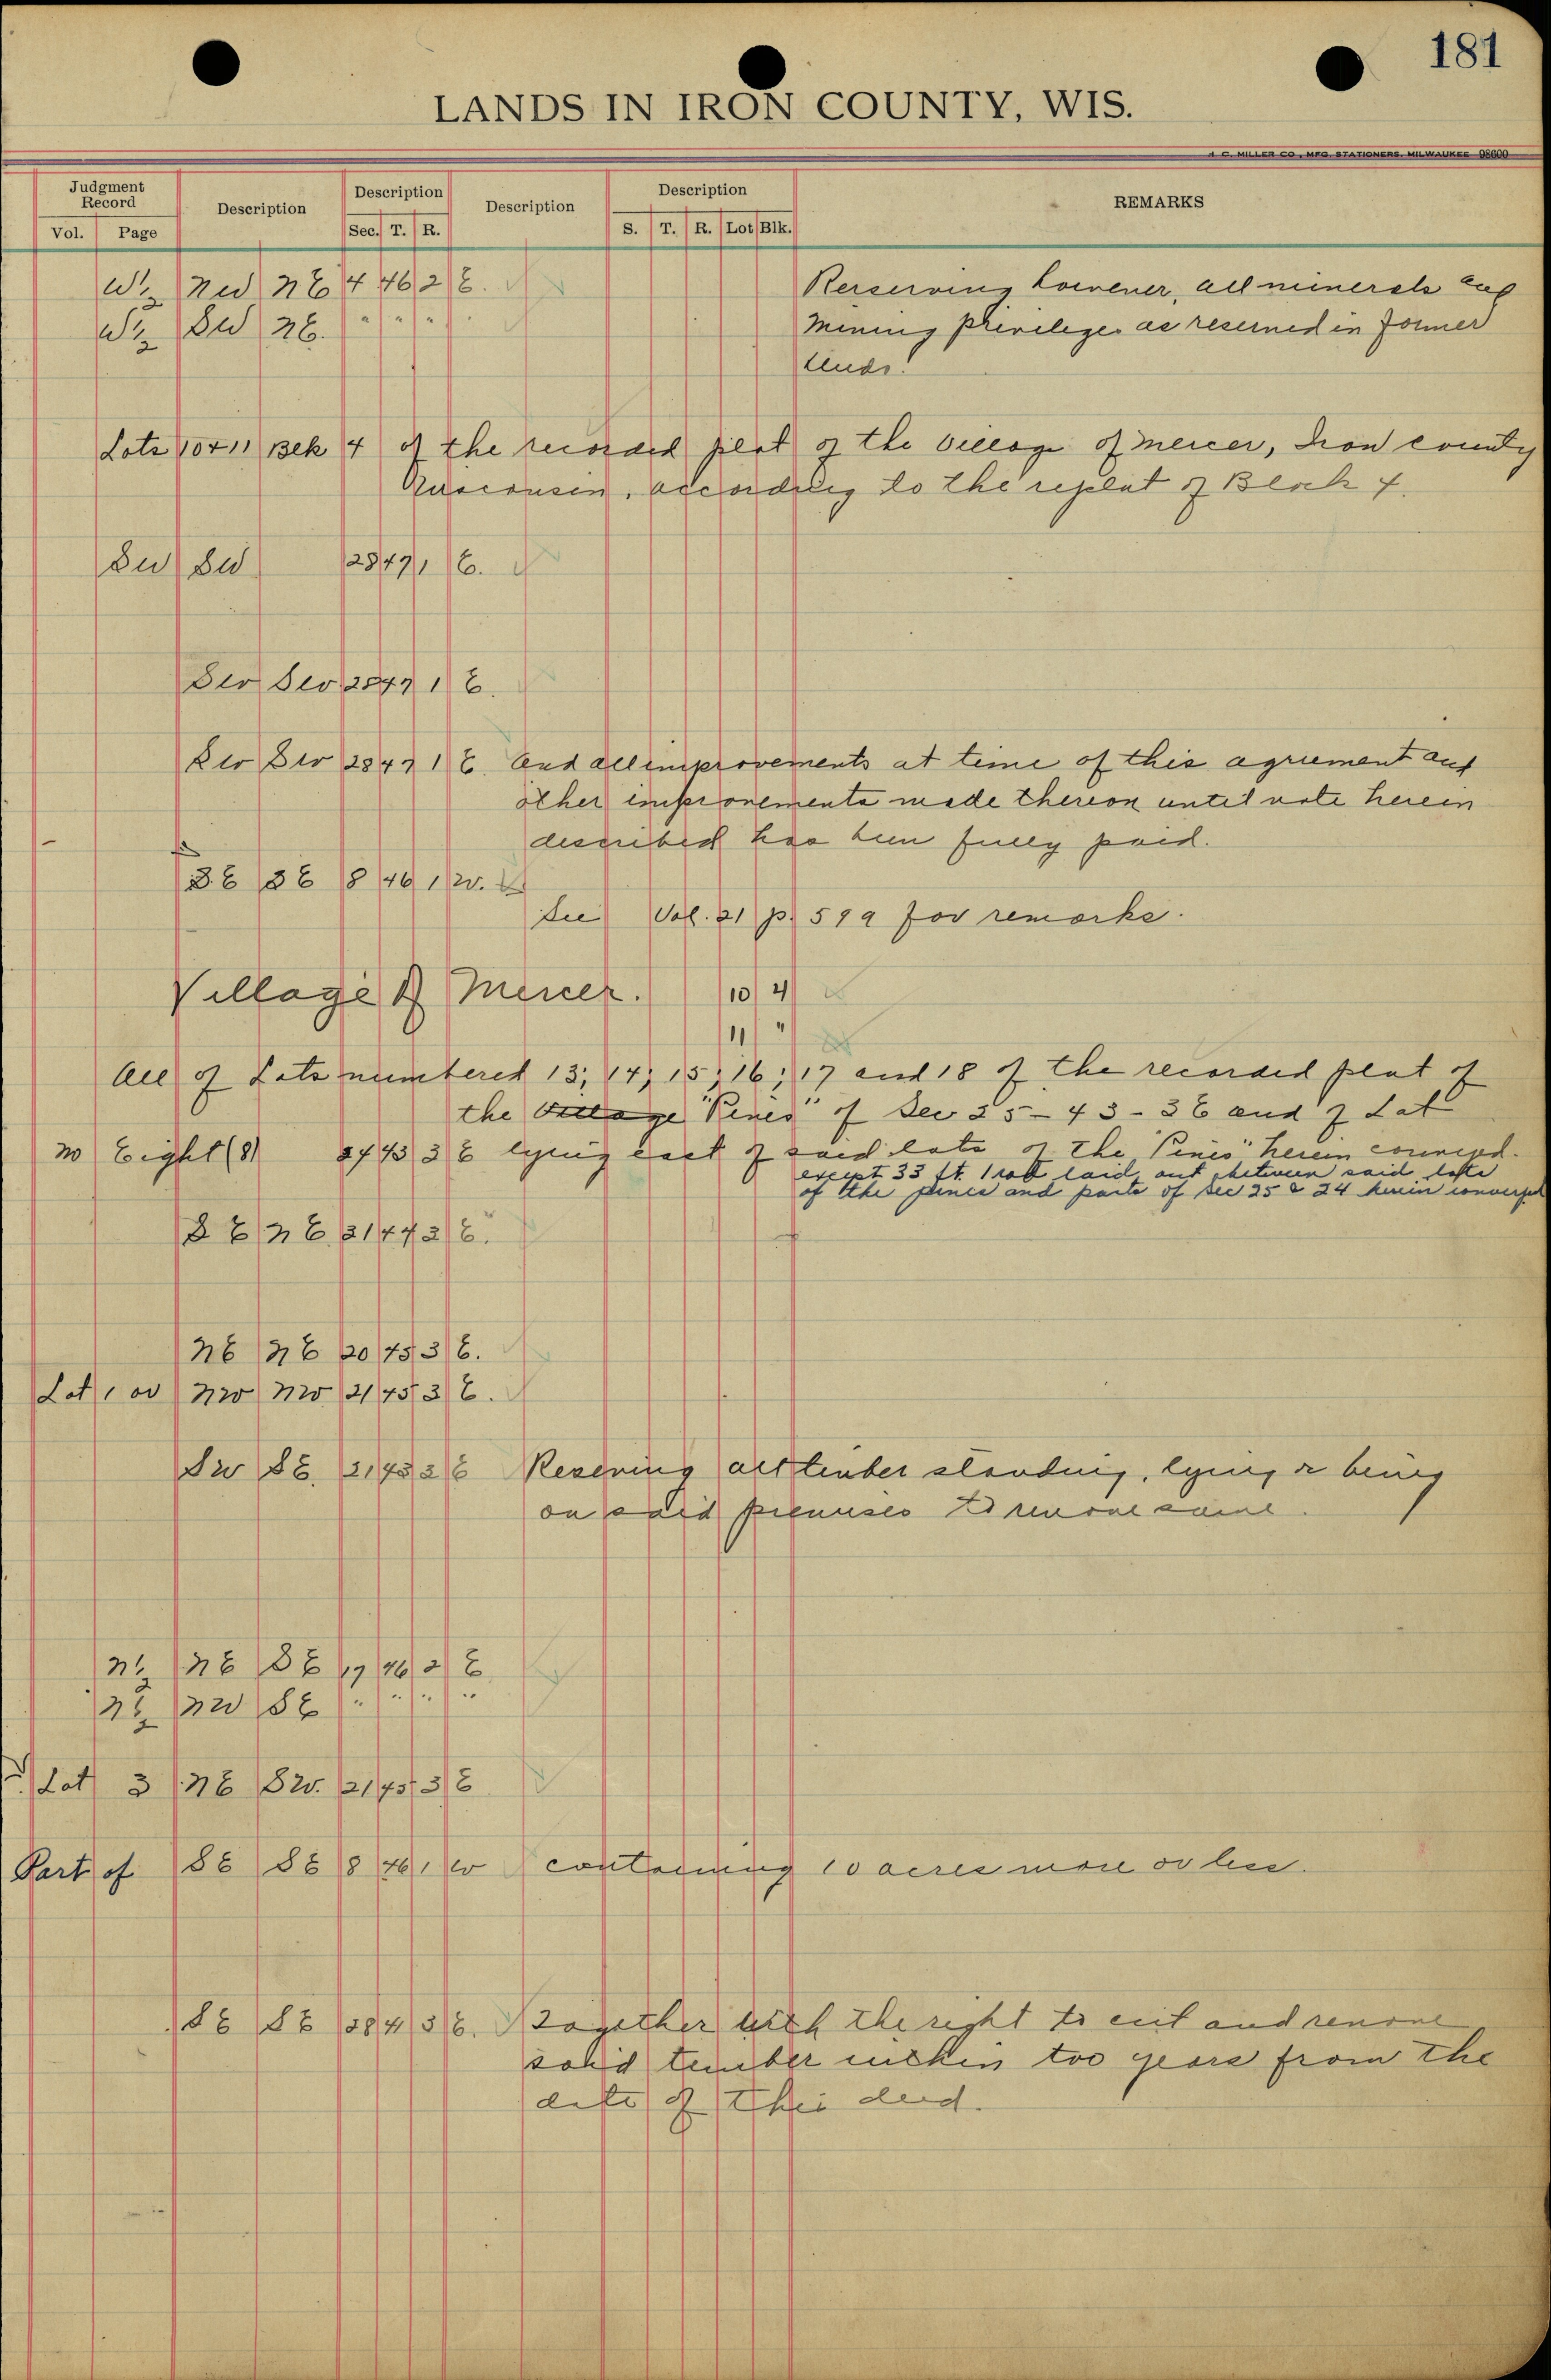 181
LANDS IN IRON COUNTY, WIS.
H. C. MILLER CO., MFG. STATIONERS, MILWAUKEE 98600
Judgment Record Description Description Description Description REMARKS
Vol. Page Sec. T. R. S. T. R. Lot Blk.
W½ NW NE 4 46 2 E. Reserving however, all minerals and
W½ SW NE. " " " " mining privileges as reserved in former
deeds.
Lots 10 & 11 Blk 4 of the recorded plat of the village of Mercer, Iron county
Wisconsin, according to the replat of Block 4.
SW SW 28 47 1 E.
SW SW 28 47 1 E.
SW SW 28 47 1 E. And all improvements at time of this agreement and
other improvements made thereon until note herein
described has been fully paid.
SE SE 8 46 1 W.
See Vol. 21 p. 599 for remarks.
Village of Mercer. 10 4
11 "
All of Lots numbered 13, 14, 15, 16, 17 and 18 of the recorded plat of
the Village "Pines" of Sec 25-43-3E and of Lot
No Eight (8) 24 43 3 E lying east of said lots of the "Pines" herein conveyed.
except 33 ft. 1 rod laid out between said lots
of the pines and parts of Sec 25 & 24 herein conveyed
SE NE 31 44 3 E.
NE NE 20 45 3 E.
Lot 1 or NW NW 21 45 3 E.
SW SE. 21 43 3 E Reserving all timber standing, lying or being
on said premises to remove same.
N½ NE SE 17 46 2 E
N½ NW SE " " " "
Lot 3 NE SW. 21 45 3 E
Part of SE SE 8 46 1 W containing 10 acres more or less.
SE SE 28 41 3 E. Together with the right to cut and remove
said timber within two years from the
date of this deed.